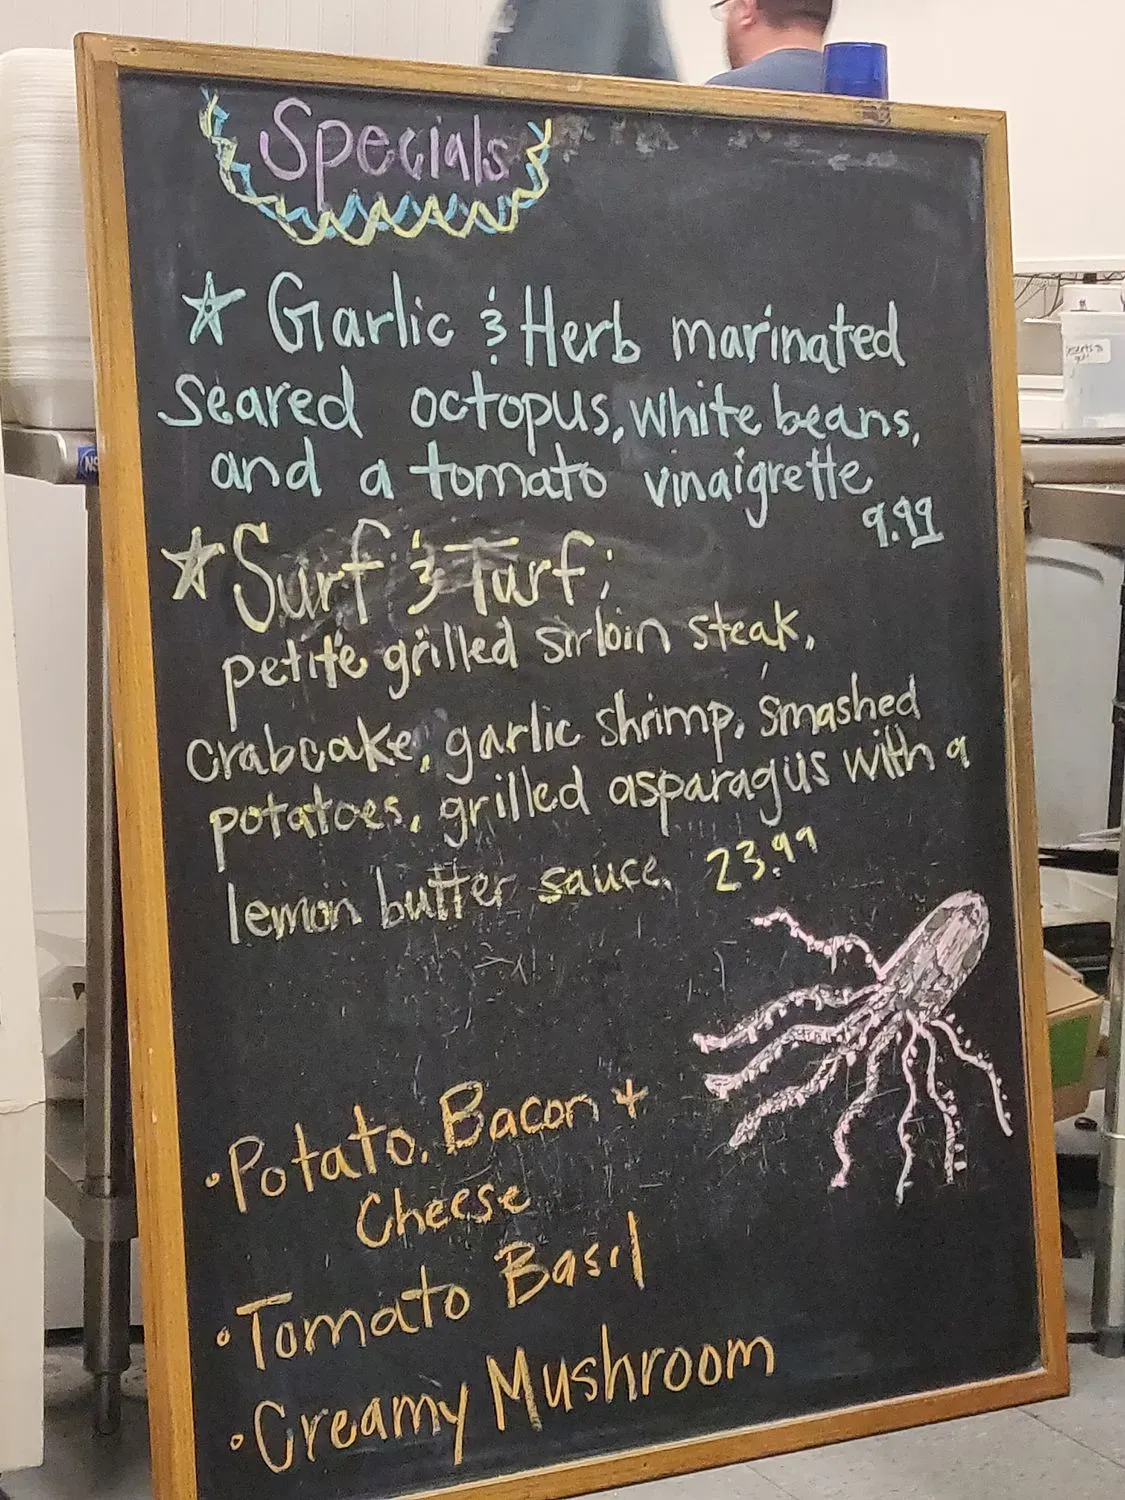 Specials
Garlic & Herb marinated
seared octopus, white beans,
and a tomato vinaigrette
9.99
Surf & Turf:
petite grilled sirloin steak,
crabcake, garlic shrimp, smashed
potatoes, grilled asparagus with a
lemon butter sauce. 23.99
• Potato, Bacon +
Cheese
• Tomato Basil
• Creamy Mushroom